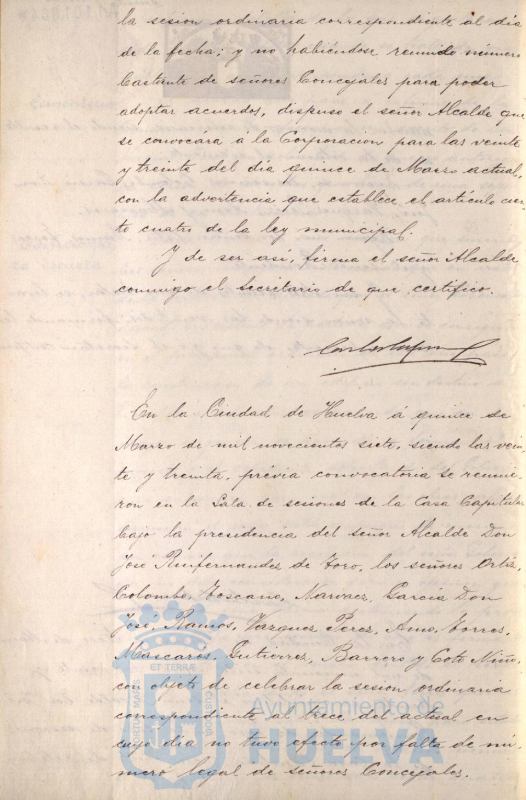 la sesion ordinaria correspondiente al dia
de la fecha; y no habiéndose reunido número
bastante de señores Concejales para poder
adoptar acuerdos, dispuso el señor Alcalde que
se convocára á la Corporacion para las veinte
y treinta del dia quince de Marzo actual,
con la advertencia que establece el artículo cien-
to cuatro de la ley municipal.
Y de ser asi, firma el señor Alcalde
conmigo el Secretario de que certifico.
En la Ciudad de Huelva á quince de
Marzo de mil novecientos siete, siendo las vein-
te y treinta, prévia convocatoria se reunie-
ron en la Sala de sesiones de la Casa Capitular
bajo la presidencia del señor Alcalde Don
José Ruifernandez de Toro, los señores Ortiz,
Colombo, Toscano, Narvaez, García Don
José, Ramos, Vazquez Perez, Amo, Torres,
Mascarós, Gutierrez, Barrero y Coto Niño,
con objeto de celebrar la sesion ordinaria
correspondiente al trece del actual en
cuyo dia no tuvo efecto por falta de nú-
mero legal de señores Concejales.
ET TERRÆ
Ayuntamiento de
HUELVA